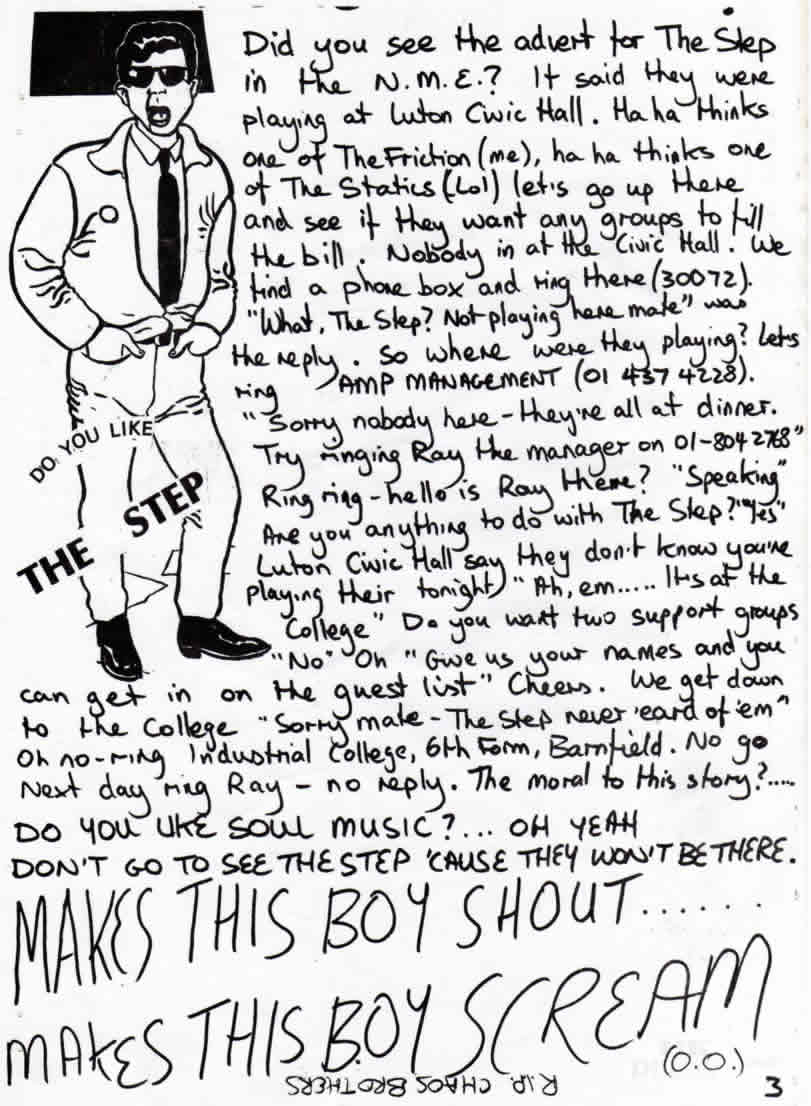 Did you see the advert for The Step
in the N.M.E.? It said they were
playing at Luton Civic Hall. Ha ha thinks
one of The Friction (me), ha ha thinks one
of The Statics (Lol) let's go up there
and see if they want any groups to fill
the bill. Nobody in at the Civic Hall. We
find a phone box and ring there (30072).
"What, The Step? Not playing here mate" was
the reply. So where were they playing? Lets
ring AMP MANAGEMENT (01 437 4228).
"Sorry nobody here - they're all at dinner.
Try ringing Ray the manager on 01-804 2768"
Ring ring - hello is Ray there? "Speaking"
Are you anything to do with The Step? "Yes"
Luton Civic Hall say they don't know you're
playing their tonight) "Ah, em..... It's at the
College" Do you want two support groups
"No" Oh "Give us your names and you
can get in on the guest list" Cheers. We get down
to the College "Sorry mate - The Step never 'eard of 'em"
Oh no-ring Industrial College, 6th Form, Barnfield. No go
Next day ring Ray - no reply. The moral to this story?.....
DO YOU LIKE SOUL MUSIC?... OH YEAH
DON'T GO TO SEE THE STEP 'CAUSE THEY WON'T BE THERE.
MAKES THIS BOY SHOUT......
MAKES THIS BOY SCREAM
(O.O.)
R.I.P. CHAOS BROTHERS
3
DO YOU LIKE
THE STEP